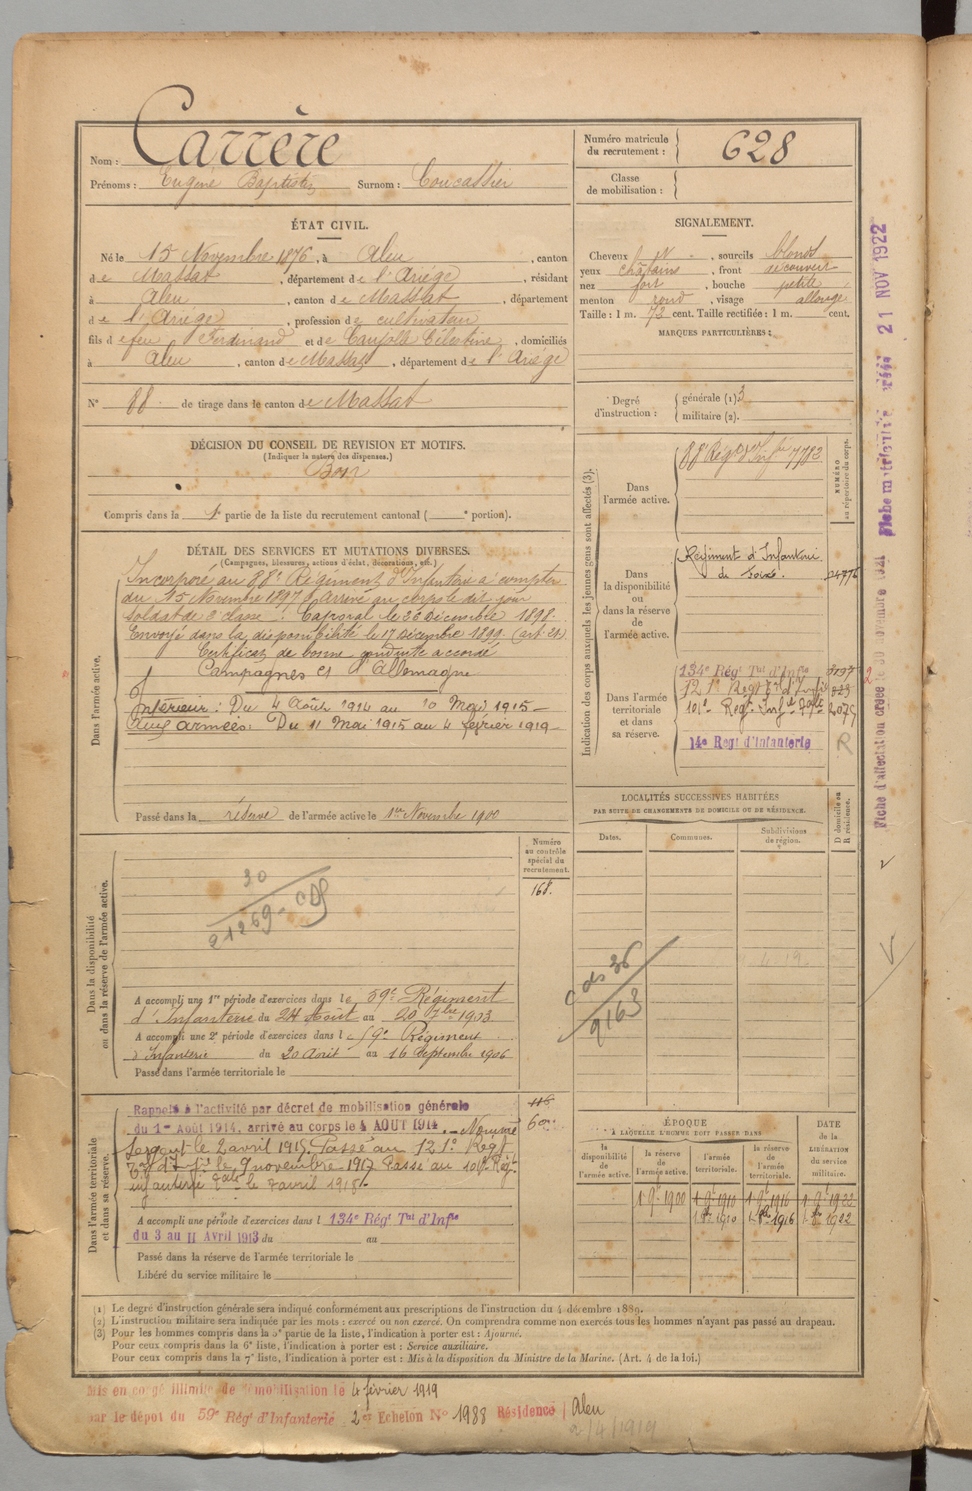 Nom : Carrère
Prénoms : Eugène Baptiste Surnom : Coucassier
Numéro matricule du recrutement : 628
Classe de mobilisation :
ÉTAT CIVIL.
Né le 15 Novembre 1876, à Aleu, canton
de Massat, département de l'Ariège, résidant
à Aleu, canton de Massat, département
de l'Ariège, profession de cultivateur
fils de feu Ferdinand et de Célestine, domiciliés
à Aleu, canton de Massat, département de l'Ariège
N° 88 de tirage dans le canton de Massat
DÉCISION DU CONSEIL DE REVISION ET MOTIFS.
(Indiquer la nature des dispenses.)
Bon
Compris dans la 1e partie de la liste du recrutement cantonal ( e portion).
SIGNALEMENT.
Cheveux , sourcils blonds
yeux châtains , front découvert
nez fort , bouche petite
menton rond , visage allongé
Taille : 1 m. 72 cent. Taille rectifiée : 1 m. cent.
MARQUES PARTICULIÈRES :
Degré d'instruction : générale (1) 3
militaire (2).
DÉTAIL DES SERVICES ET MUTATIONS DIVERSES.
(Campagnes, blessures, actions d'éclat, décorations, etc.)
Dans l'armée active.
Incorporé au 88e Régiment d'Infanterie à compter
du 15 Novembre 1897. Arrivé au corps le dit jour
soldat de 2e classe. Caporal le 26 Décembre 1898.
Envoyé dans la disponibilité le 17 Décembre 1899 (art. 21)
Certificat de bonne conduite accordé
Campagnes contre l'Allemagne
Intérieur : Du 4 Août 1914 au 10 Mai 1915
Aux armées. Du 11 Mai 1915 au 4 février 1919
Passé dans la réserve de l'armée active le 1er Novembre 1900
Indication des corps auxquels les jeunes gens sont affectés (3).
NUMÉRO au répertoire du corps.
Dans l'armée active.
88e Régt d'Infie 7782
Dans la disponibilité ou dans la réserve de l'armée active.
Régiment d'Infanterie
de Foix.
Dans l'armée territoriale et dans sa réserve.
134e Régt Tal d'Infie
121e Regt Tal d'Infie
101e Regt Infie
14e Regt d'Infanterie
R
LOCALITÉS SUCCESSIVES HABITÉES
PAR SUITE DE CHANGEMENTS DE DOMICILE OU DE RÉSIDENCE.
Dates. Communes. Subdivisions de région. D domicile ou R résidence.
Dans la disponibilité ou dans la réserve de l'armée active.
Numéro au contrôle spécial du recrutement.
168.
30
21269 - CDS
cds 36
9163
A accompli une 1re période d'exercices dans le 59e Régiment
d'Infanterie du 24 Août au 20 7bre 1903
A accompli une 2e période d'exercices dans le 59e Régiment
d'Infanterie du 20 Août au 16 Septembre 1906
Passé dans l'armée territoriale le
Dans l'armée territoriale et dans sa réserve.
Rappelé à l'activité par décret de mobilisation générale
du 1er Août 1914, arrivé au corps le 4 AOUT 1914. Nommé
Sergent le 2 avril 1915. Passé au 121e Régt
le 9 novembre 1917 Passé au 101e Régt
infanterie le avril 1918.
A accompli une période d'exercices dans l 134e Régt Tal d'Infie
du 3 au 11 Avril 1913 du au
Passé dans la réserve de l'armée territoriale le
Libéré du service militaire le
ÉPOQUE
À LAQUELLE L'HOMME DOIT PASSER DANS
la disponibilité de l'armée active.
la réserve de l'armée active.
l'armée territoriale.
la réserve de l'armée territoriale.
DATE de la LIBÉRATION du service militaire.
1 9e 1900 1 9e 1910 1 9e 1916 1 9e 1922
1910 1916 1922
(1) Le degré d'instruction générale sera indiqué conformément aux prescriptions de l'instruction du 4 décembre 1889.
(2) L'instruction militaire sera indiquée par les mots : exercé ou non exercé. On comprendra comme non exercés tous les hommes n'ayant pas passé au drapeau.
(3) Pour les hommes compris dans la 5e partie de la liste, l'indication à porter est : Ajourné.
Pour ceux compris dans la 6e liste, l'indication à porter est : Service auxiliaire.
Pour ceux compris dans la 7e liste, l'indication à porter est : Mis à la disposition du Ministre de la Marine. (Art. 4 de la loi.)
Mis en congé illimité de démobilisation le 4 février 1919
par le dépôt du 59e Régt d'Infanterie 2e Echelon N° 1988 Résidence Aleu
2/4/1919
Fiche matricule créée 21 NOV 1922
Fiche d'affectation créée le 30 novembre 1921